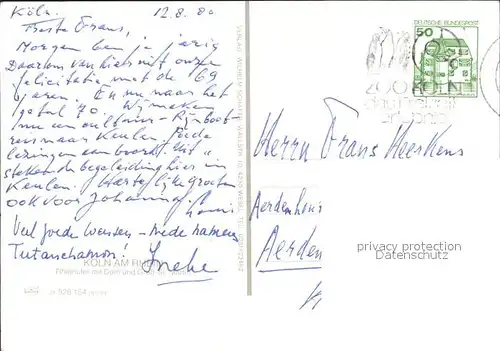 Köln. 12.8.80
Beste Frans,
Morgen ben je jarig
Daarom van hier uit onze
felicitatie met de 69
jaren. En nu naar het
getal 70. Wij maken
nu een cultuur - Rijnboot-
reis naar Keulen. Vele
lezingen aan boord. Uit-
stekende begeleiding hier in
Keulen. Hartelijke groeten
ook voor Johanna. Louis
Veel goede wensen - mede namens
Tutanchamon!
Ineke
KÖLN AM RHEIN
Rheinufer mit Dom und
VERLAG WILHELM
DEUTSCHE BUNDESPOST
50
ZOO KÖLN
Herrn Frans Heerkens
Aerdenhout
Aerden
privacy protection
Datenschutz